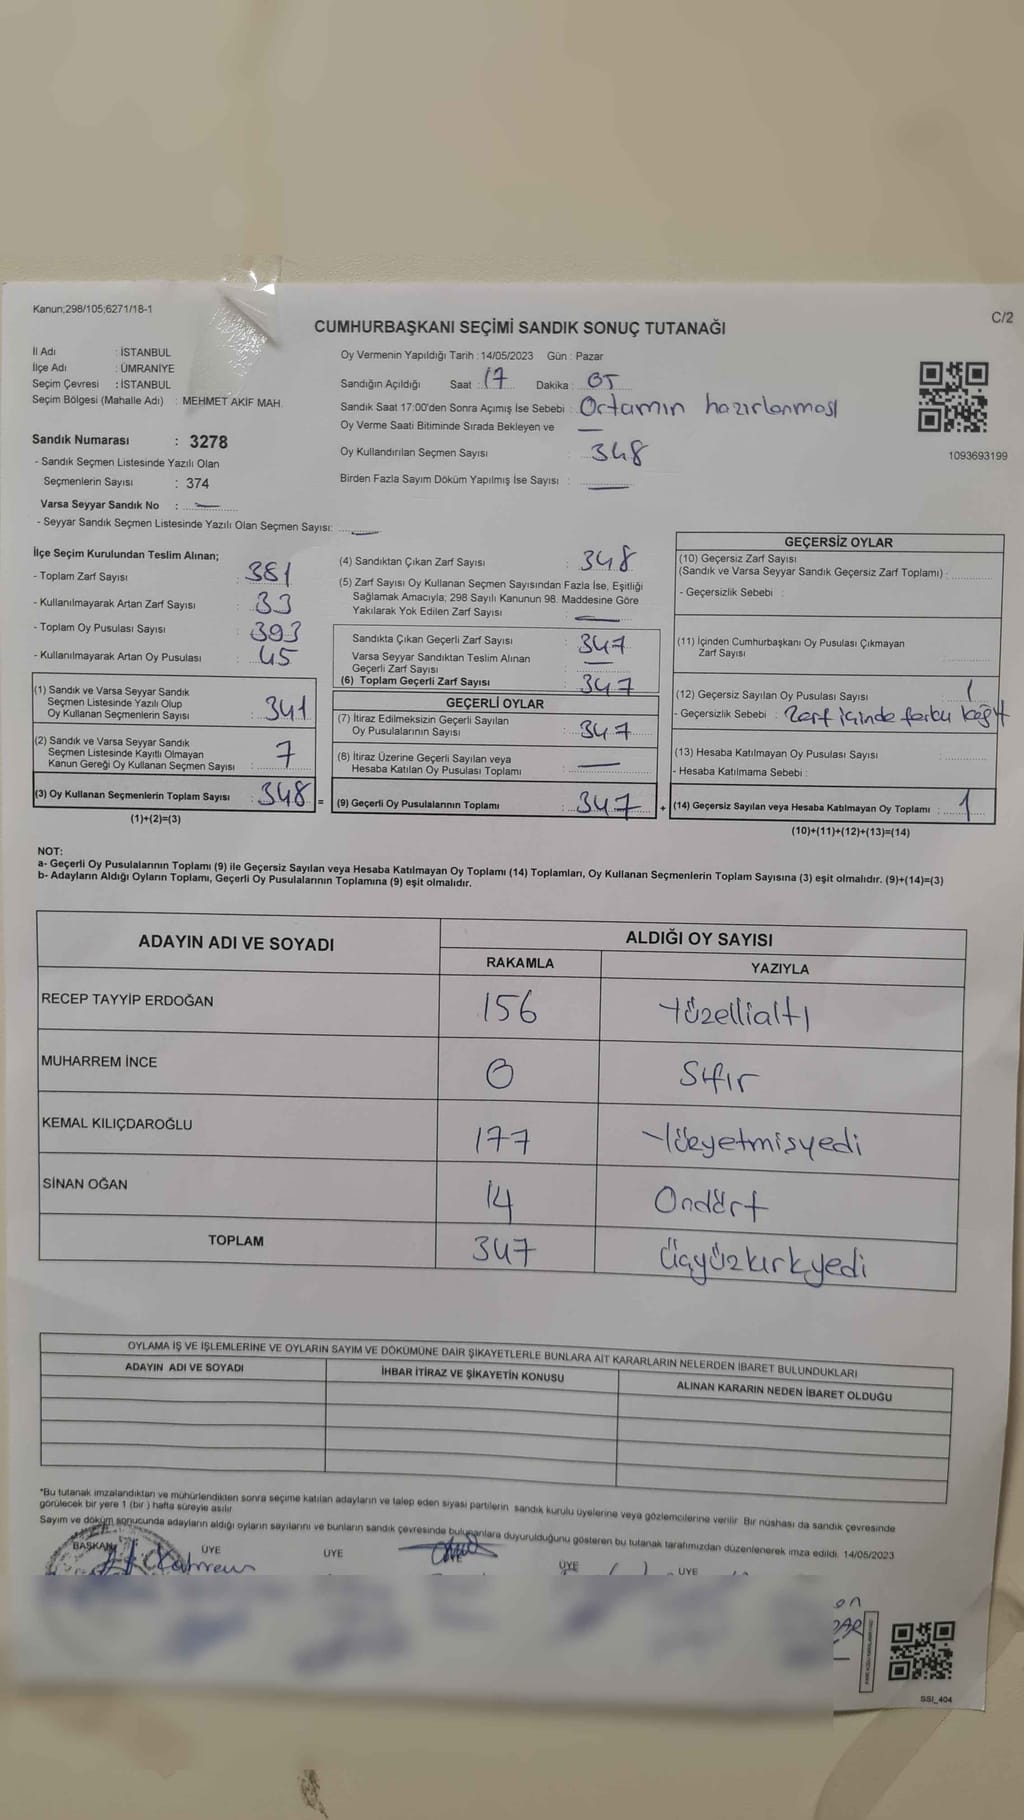 Kanun;298/105;6271/18-1
C/2
CUMHURBAŞKANI SEÇİMİ SANDIK SONUÇ TUTANAĞI
İl Adı : İSTANBUL
İlçe Adı : ÜMRANİYE
Seçim Çevresi : İSTANBUL
Seçim Bölgesi (Mahalle Adı) : MEHMET AKİF MAH.
Sandık Numarası : 3278
- Sandık Seçmen Listesinde Yazılı Olan
Seçmenlerin Sayısı : 374
Varsa Seyyar Sandık No : —
- Seyyar Sandık Seçmen Listesinde Yazılı Olan Seçmen Sayısı: —
Oy Vermenin Yapıldığı Tarih : 14/05/2023 Gün : Pazar
Sandığın Açıldığı Saat : 17 Dakika : 05
Sandık Saat 17:00'den Sonra Açımış İse Sebebi : Ortamın hazırlanması
Oy Verme Saati Bitiminde Sırada Bekleyen ve —
Oy Kullandırılan Seçmen Sayısı : 348
Birden Fazla Sayım Döküm Yapılmış İse Sayısı : —
1093693199
İlçe Seçim Kurulundan Teslim Alınan;
- Toplam Zarf Sayısı : 381
- Kullanılmayarak Artan Zarf Sayısı : 33
- Toplam Oy Pusulası Sayısı : 393
- Kullanılmayarak Artan Oy Pusulası : 45
(1) Sandık ve Varsa Seyyar Sandık
Seçmen Listesinde Yazılı Olup
Oy Kullanan Seçmenlerin Sayısı : 341
(2) Sandık ve Varsa Seyyar Sandık
Seçmen Listesinde Kayıtlı Olmayan
Kanun Gereği Oy Kullanan Seçmen Sayısı : 7
(3) Oy Kullanan Seçmenlerin Toplam Sayısı : 348 =
(1)+(2)=(3)
(4) Sandıktan Çıkan Zarf Sayısı : 348
(5) Zarf Sayısı Oy Kullanan Seçmen Sayısından Fazla İse, Eşitliği
Sağlamak Amacıyla; 298 Sayılı Kanunun 98. Maddesine Göre
Yakılarak Yok Edilen Zarf Sayısı : —
Sandıkta Çıkan Geçerli Zarf Sayısı : 347
Varsa Seyyar Sandıktan Teslim Alınan
Geçerli Zarf Sayısı : —
(6) Toplam Geçerli Zarf Sayısı : 347
GEÇERLİ OYLAR
(7) İtiraz Edilmeksizin Geçerli Sayılan
Oy Pusulalarının Sayısı : 347
(8) İtiraz Üzerine Geçerli Sayılan veya
Hesaba Katılan Oy Pusulası Toplamı : —
(9) Geçerli Oy Pusulalarının Toplamı : 347 +
GEÇERSİZ OYLAR
(10) Geçersiz Zarf Sayısı
(Sandık ve Varsa Seyyar Sandık Geçersiz Zarf Toplamı) :
- Geçersizlik Sebebi :
(11) İçinden Cumhurbaşkanı Oy Pusulası Çıkmayan
Zarf Sayısı :
(12) Geçersiz Sayılan Oy Pusulası Sayısı : 1
- Geçersizlik Sebebi : Zarf içinde farklı kağıt
(13) Hesaba Katılmayan Oy Pusulası Sayısı :
- Hesaba Katılmama Sebebi :
(14) Geçersiz Sayılan veya Hesaba Katılmayan Oy Toplamı : 1
(10)+(11)+(12)+(13)=(14)
NOT:
a- Geçerli Oy Pusulalarının Toplamı (9) ile Geçersiz Sayılan veya Hesaba Katılmayan Oy Toplamı (14) Toplamları, Oy Kullanan Seçmenlerin Toplam Sayısına (3) eşit olmalıdır. (9)+(14)=(3)
b- Adayların Aldığı Oyların Toplamı, Geçerli Oy Pusulalarının Toplamına (9) eşit olmalıdır.
ADAYIN ADI VE SOYADI ALDIĞI OY SAYISI
RAKAMLA YAZIYLA
RECEP TAYYİP ERDOĞAN 156 Yüzellialtı
MUHARREM İNCE 0 Sıfır
KEMAL KILIÇDAROĞLU 177 Yüzyetmişyedi
SİNAN OĞAN 14 Ondört
TOPLAM 347 Üçyüzkırkyedi
OYLAMA İŞ VE İŞLEMLERİNE VE OYLARIN SAYIM VE DÖKÜMÜNE DAİR ŞİKAYETLERLE BUNLARA AİT KARARLARIN NELERDEN İBARET BULUNDUKLARI
ADAYIN ADI VE SOYADI İHBAR İTİRAZ VE ŞİKAYETİN KONUSU ALINAN KARARIN NEDEN İBARET OLDUĞU
*Bu tutanak imzalandıktan ve mühürlendikten sonra seçime katılan adayların ve talep eden siyasi partilerin sandık kurulu üyelerine veya gözlemcilerine verilir. Bir nüshası da sandık çevresinde
görülecek bir yere 1 (bir ) hafta süreyle asılır
Sayım ve döküm sonucunda adayların aldığı oyların sayılarını ve bunların sandık çevresinde bulunanlara duyurulduğunu gösteren bu tutanak tarafımızdan düzenlenerek imza edildi. 14/05/2023
BAŞKAN ÜYE ÜYE ÜYE ÜYE
SSI_404